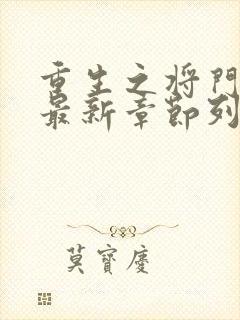 重生之将门
最新章节列
莫寶慶